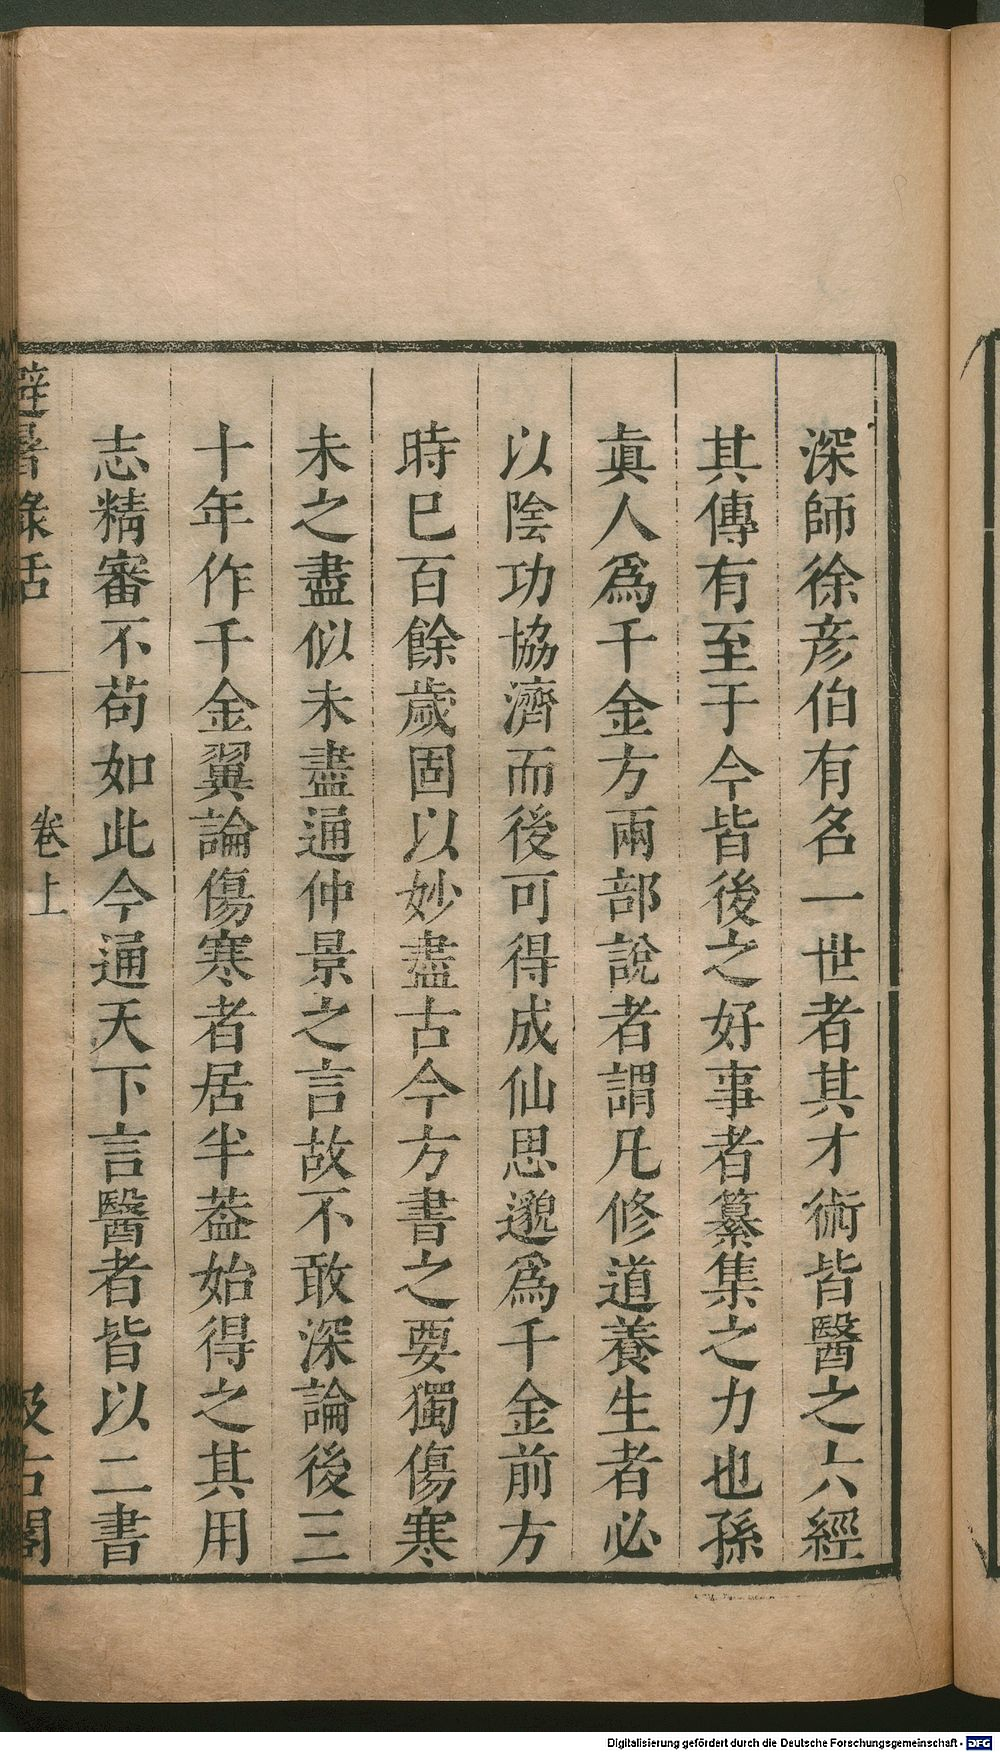 深師徐彥伯有名一世者其才術皆醫之六經
其傳有至于今皆後之好事者纂集之力也孫
眞人爲千金方兩部說者謂凡修道養生者必
以陰功協濟而後可得成仙思邈爲千金前方
時巳百餘歲固以妙盡古今方書之要獨傷寒
未之盡似未盡通仲景之言故不敢深論後三
十年作千金翼論傷寒者居半葢始得之其用
志精審不苟如此今通天下言醫者皆以二書
避暑錄話 卷上 汲古閣
Digitalisierung gefördert durch die Deutsche Forschungsgemeinschaft - DFG